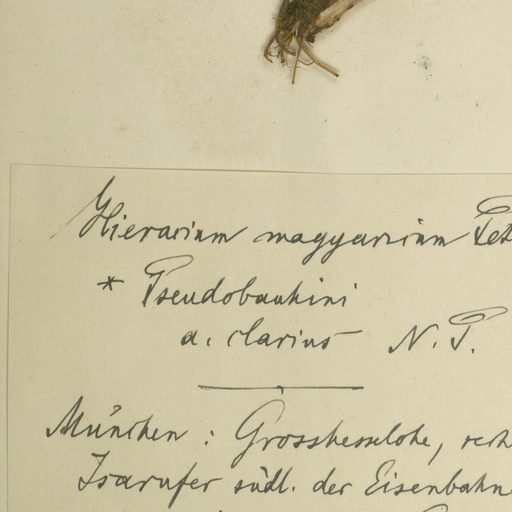 Hieracium magyaricum Pet
* Pseudobauhini
a. clarius N. P.
München : Grosshesselohe, rech
Isarufer südl. der Eisenbahn